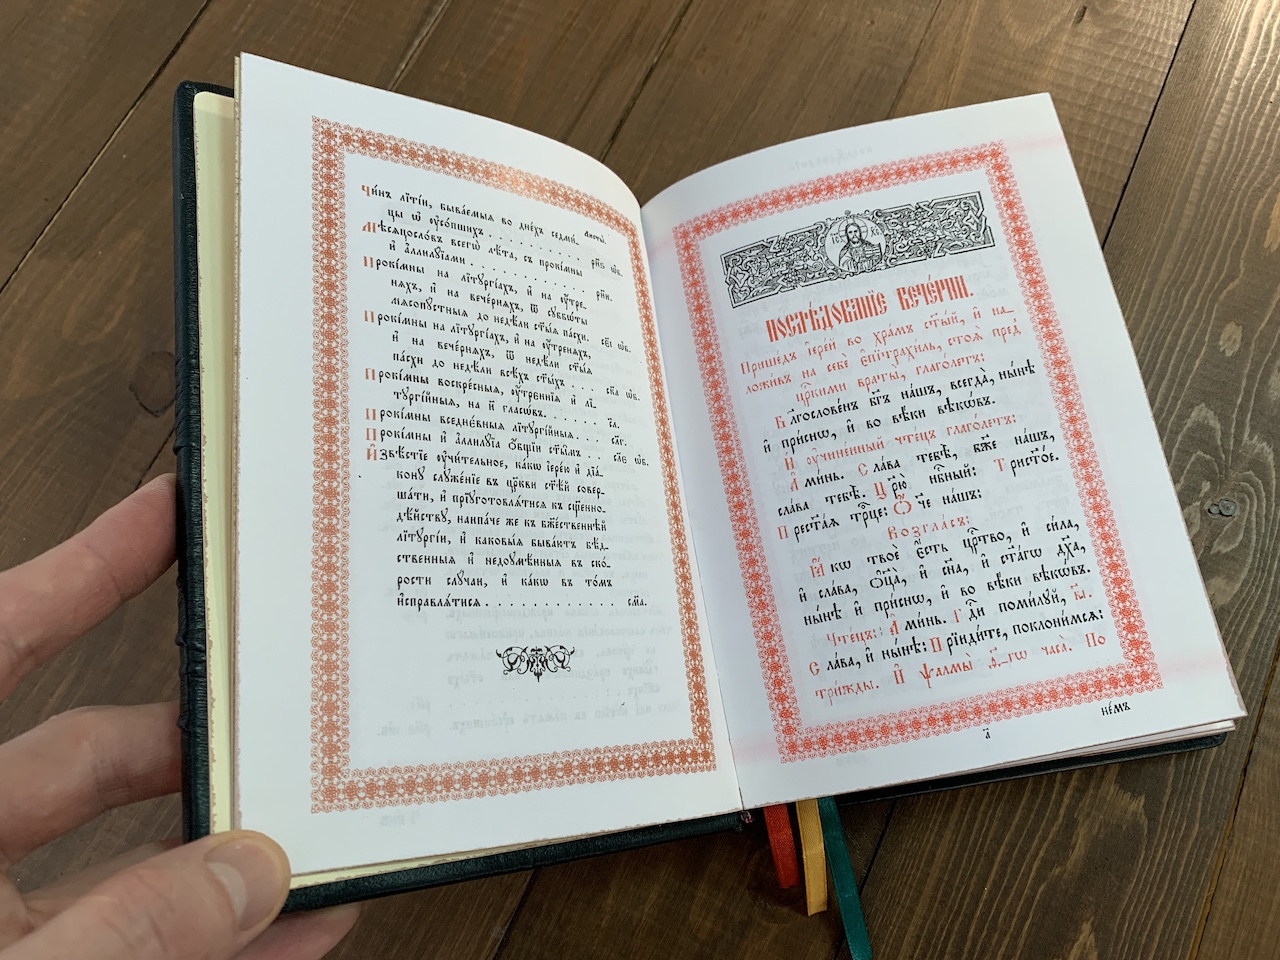 Чи́нъ лїті́и, быва́емыя во дне́хъ седми́_
цы ѡ҆ ᲂу҆со́пшихъ . . . . . . . . . .
Листы̀.
рн҃ѕ ѡ҆б.
Мѣсяцосло́въ всегѡ̀ лѣ́та, съ прокі́мны
и҆ а҆ллилꙋ́їами . . . . . . . . . . рн҃и.
Прокі́мны на лїтꙋргі́ахъ, и҆ на ᲂу҆́тре_
няхъ, и҆ на вече́рняхъ, ѿ сꙋббѡ́ты
мѧсопꙋ́стныя до недѣ́ли ст҃ы́ѧ па́схи.
Прокі́мны на лїтꙋргі́ахъ, и҆ на ᲂу҆́треняхъ,
и҆ на вече́рняхъ, ѿ недѣ́ли ст҃ы́ѧ
па́схи до недѣ́ли всѣ́хъ ст҃ы́хъ . . . ск҃а ѡ҆б.
Прокі́мны воскре́сныѧ, ᲂу҆́треннїѧ и҆ лї_
тꙋргі́йныѧ, на и҃ гласѡ́въ. . . . . .
Прокі́мны вседне́вныѧ лїтꙋргі́йныѧ . . .
Прокі́мны и҆ а҆ллилꙋ́їа ѻ҆́бщїи ст҃ы̑мъ . . ѡ҆б.
И҆звѣ́стїе ᲂу҆чи́тельное, ка́кѡ і҆ере́ю и҆ дїа́_
конꙋ слꙋже́нїе въ цр҃кви ст҃ѣ́й совер_
ша́ти, и҆ прїꙋготовлѧ́тисѧ къ сщ҃енно_
дѣ́йствꙋ, наипа́че же къ бж҃е́ственнѣй
лїтꙋргі́и, и҆ каковы̑ѧ быва́ютъ бѣ́д_
ственныѧ и҆ недоꙋмѣ́нныѧ въ ско́_
рости слꙋ́чаи, и҆ ка́кѡ въ то́мъ
и҆справлѧ́тисѧ . . . . . . . . . . . см҃а.
ІС ХС
ПОСЛѢ́ДОВАНЇЕ ВЕЧЕ́РНИ.
Прише́дъ і҆ере́й во хра́мъ ст҃ы́й, и҆ на_
ложи́въ на себѐ є҆пїтрахи́ль, стоѧ̀ пред̾
цр҃кими враты̀, глаго́летъ:
Бл҃гослове́нъ бг҃ъ на́шъ, всегда̀, ны́нѣ
и҆ при́снѡ, и҆ во вѣ́ки вѣкѡ́въ.
И҆ ᲂу҆чине́нный чте́цъ глаго́летъ:
А҆ми́нь. Сла́ва тебѣ̀, бж҃е на́шъ,
сла́ва тебѣ̀. Цр҃ю̀ нб҃ный: Трист҃о́е.
Прест҃а́ѧ трⷪ҇це: Ѻ҆́ч҃е на́шъ:
Возгла́съ:
Ꙗ҆́кѡ твоѐ є҆́сть црⷭ҇тво, и҆ си́ла,
и҆ сла́ва, ѻ҆ц҃а̀, и҆ сн҃а, и҆ ст҃а́гѡ дх҃а,
ны́нѣ и҆ при́снѡ, и҆ во вѣ́ки вѣкѡ́въ.
Чте́цъ: А҆ми́нь. Гдⷭ҇и поми́лꙋй, в҃і.
Сла́ва, и҆ ны́нѣ: Прїиди́те, поклони́мсѧ:
три́жды. И҆ ѱалмы̀ ѳ҃_гѡ часа̀. По
не́мъ
а҃